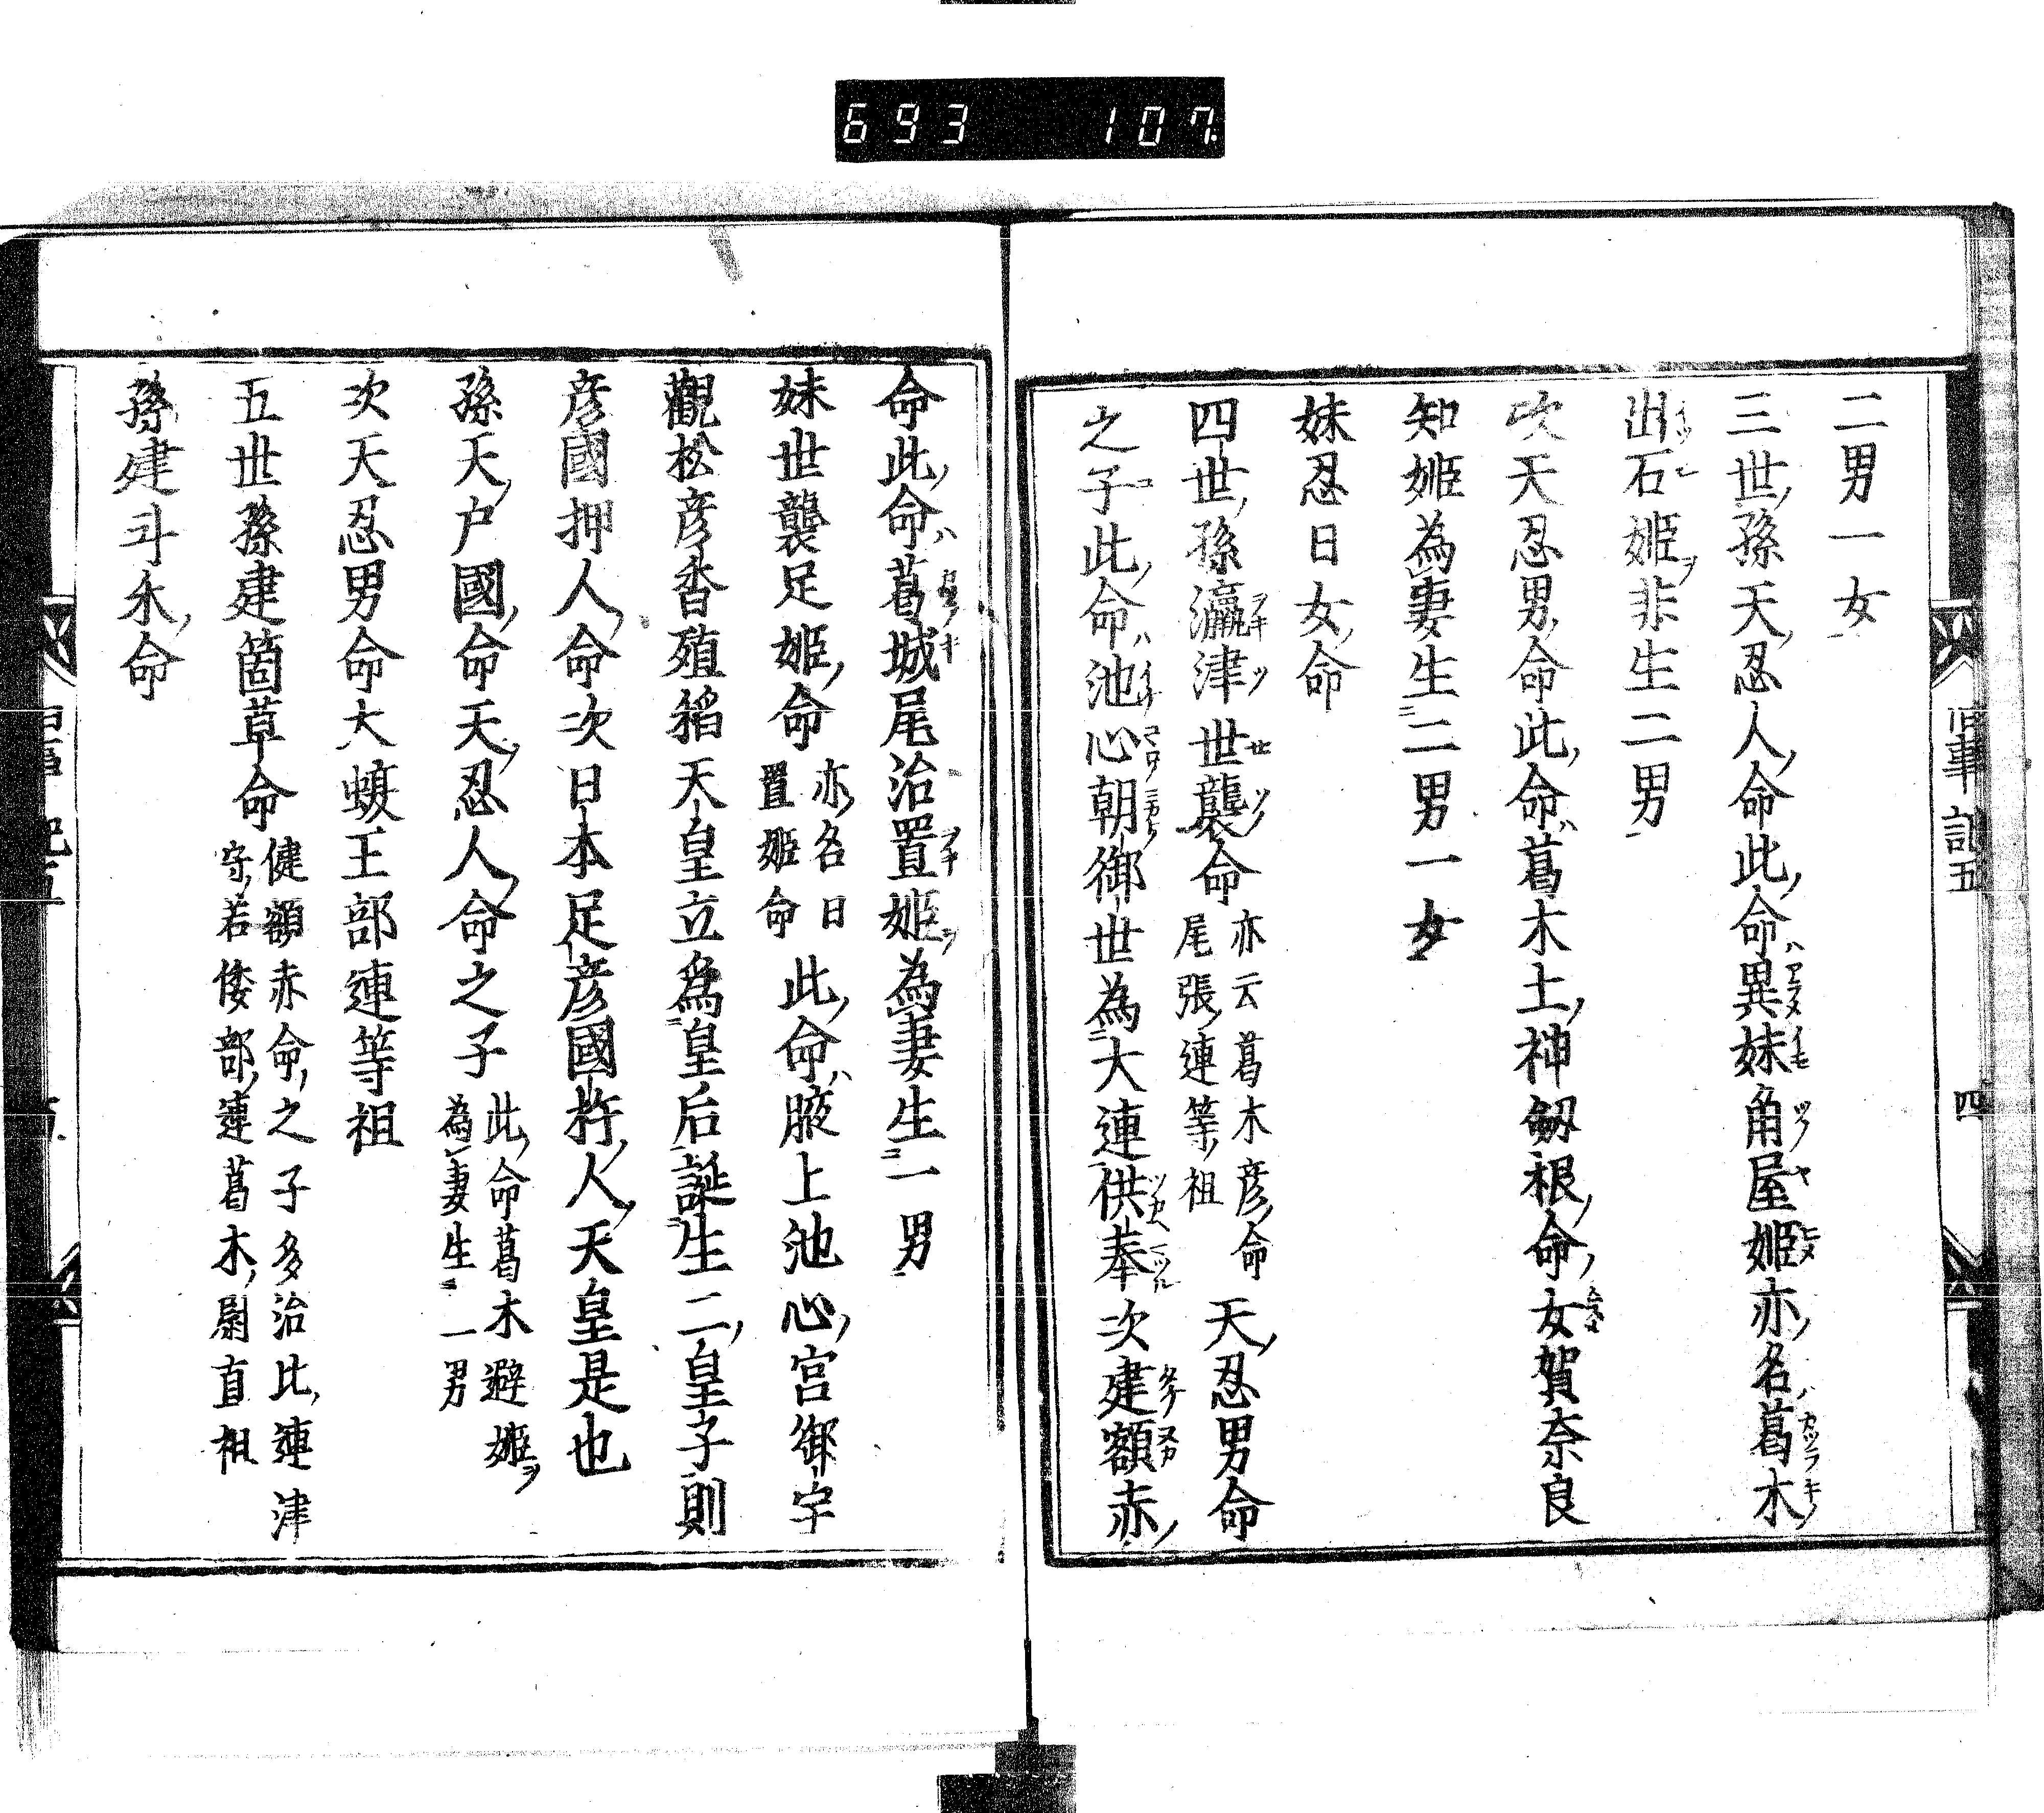 693 107
二男一女
三世孫天忍人命此命異妹角屋姫亦名葛木
出石姫非生二男
次天忍男命此命葛木土神剱根命女賀奈良
知姫為妻生二男一女
妹忍日女命
四世孫瀛津世襲命亦云葛木彦命尾張連等祖天忍男命
之子此命池心朝御世為大連供奉次建額赤
旧事記五 四
命此命葛城尾治置姫為妻生一男
妹世襲足姫命亦名日置姫命此命腋上池心宮御宇
觀松彦香殖稲天皇立為皇后誕生二皇子則
彦國押人命次日本足彦國杵人天皇是也
孫天戸國命天忍人命之子此命葛木避姫為妻生一男
次天忍男命大蝮王部連等祖
五世孫建箇草命健額赤命之子多治比連津守若倭部連葛木尉直祖
孫建斗禾命